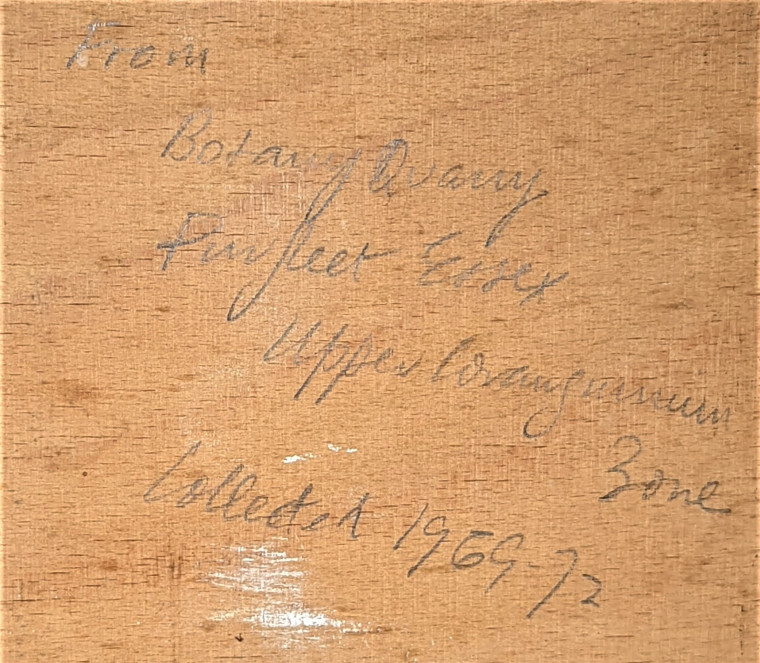 From
Botany Quarry
Purfleet Essex
Upper Coranguinum
Zone
Collected 1969-72